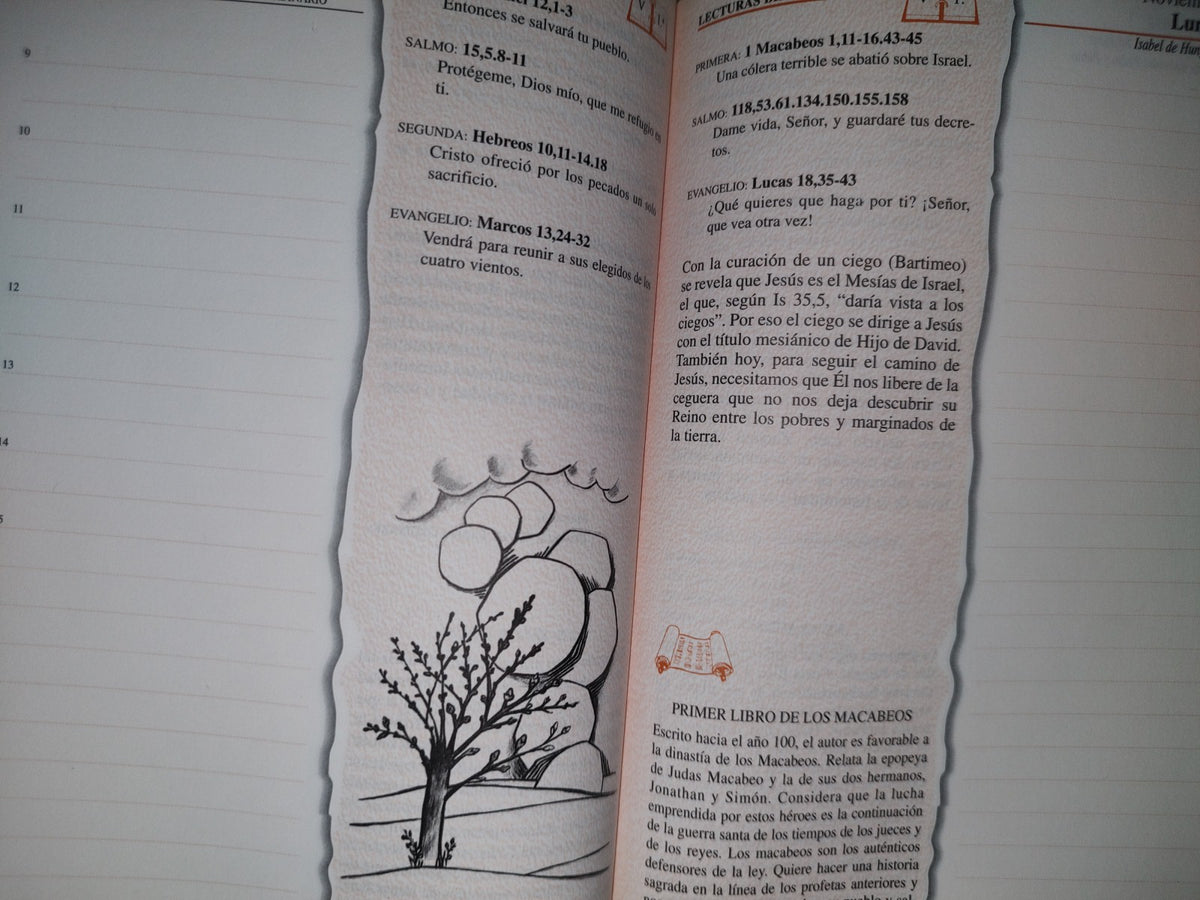 9
10
11
12
13
14
12,1-3
Entonces se salvará tu pueblo.
SALMO: 15,5.8-11
Protégeme, Dios mío, que me refugio en
ti.
SEGUNDA: Hebreos 10,11-14.18
Cristo ofreció por los pecados un solo
sacrificio.
EVANGELIO: Marcos 13,24-32
Vendrá para reunir a sus elegidos de los
cuatro vientos.
LECTURAS
PRIMERA: 1 Macabeos 1,11-16.43-45
Una cólera terrible se abatió sobre Israel.
SALMO: 118,53.61.134.150.155.158
Dame vida, Señor, y guardaré tus decre-
tos.
EVANGELIO: Lucas 18,35-43
¿Qué quieres que haga por ti? ¡Señor,
que vea otra vez!
Con la curación de un ciego (Bartimeo)
se revela que Jesús es el Mesías de Israel,
el que, según Is 35,5, “daría vista a los
ciegos”. Por eso el ciego se dirige a Jesús
con el título mesiánico de Hijo de David.
También hoy, para seguir el camino de
Jesús, necesitamos que Él nos libere de la
ceguera que no nos deja descubrir su
Reino entre los pobres y marginados de
la tierra.
PRIMER LIBRO DE LOS MACABEOS
Escrito hacia el año 100, el autor es favorable a
la dinastía de los Macabeos. Relata la epopeya
de Judas Macabeo y la de sus dos hermanos,
Jonathan y Simón. Considera que la lucha
emprendida por estos héroes es la continuación
de la guerra santa de los tiempos de los jueces y
de los reyes. Los macabeos son los auténticos
defensores de la ley. Quiere hacer una historia
sagrada en la línea de los profetas anteriores y
Isabel de Hun